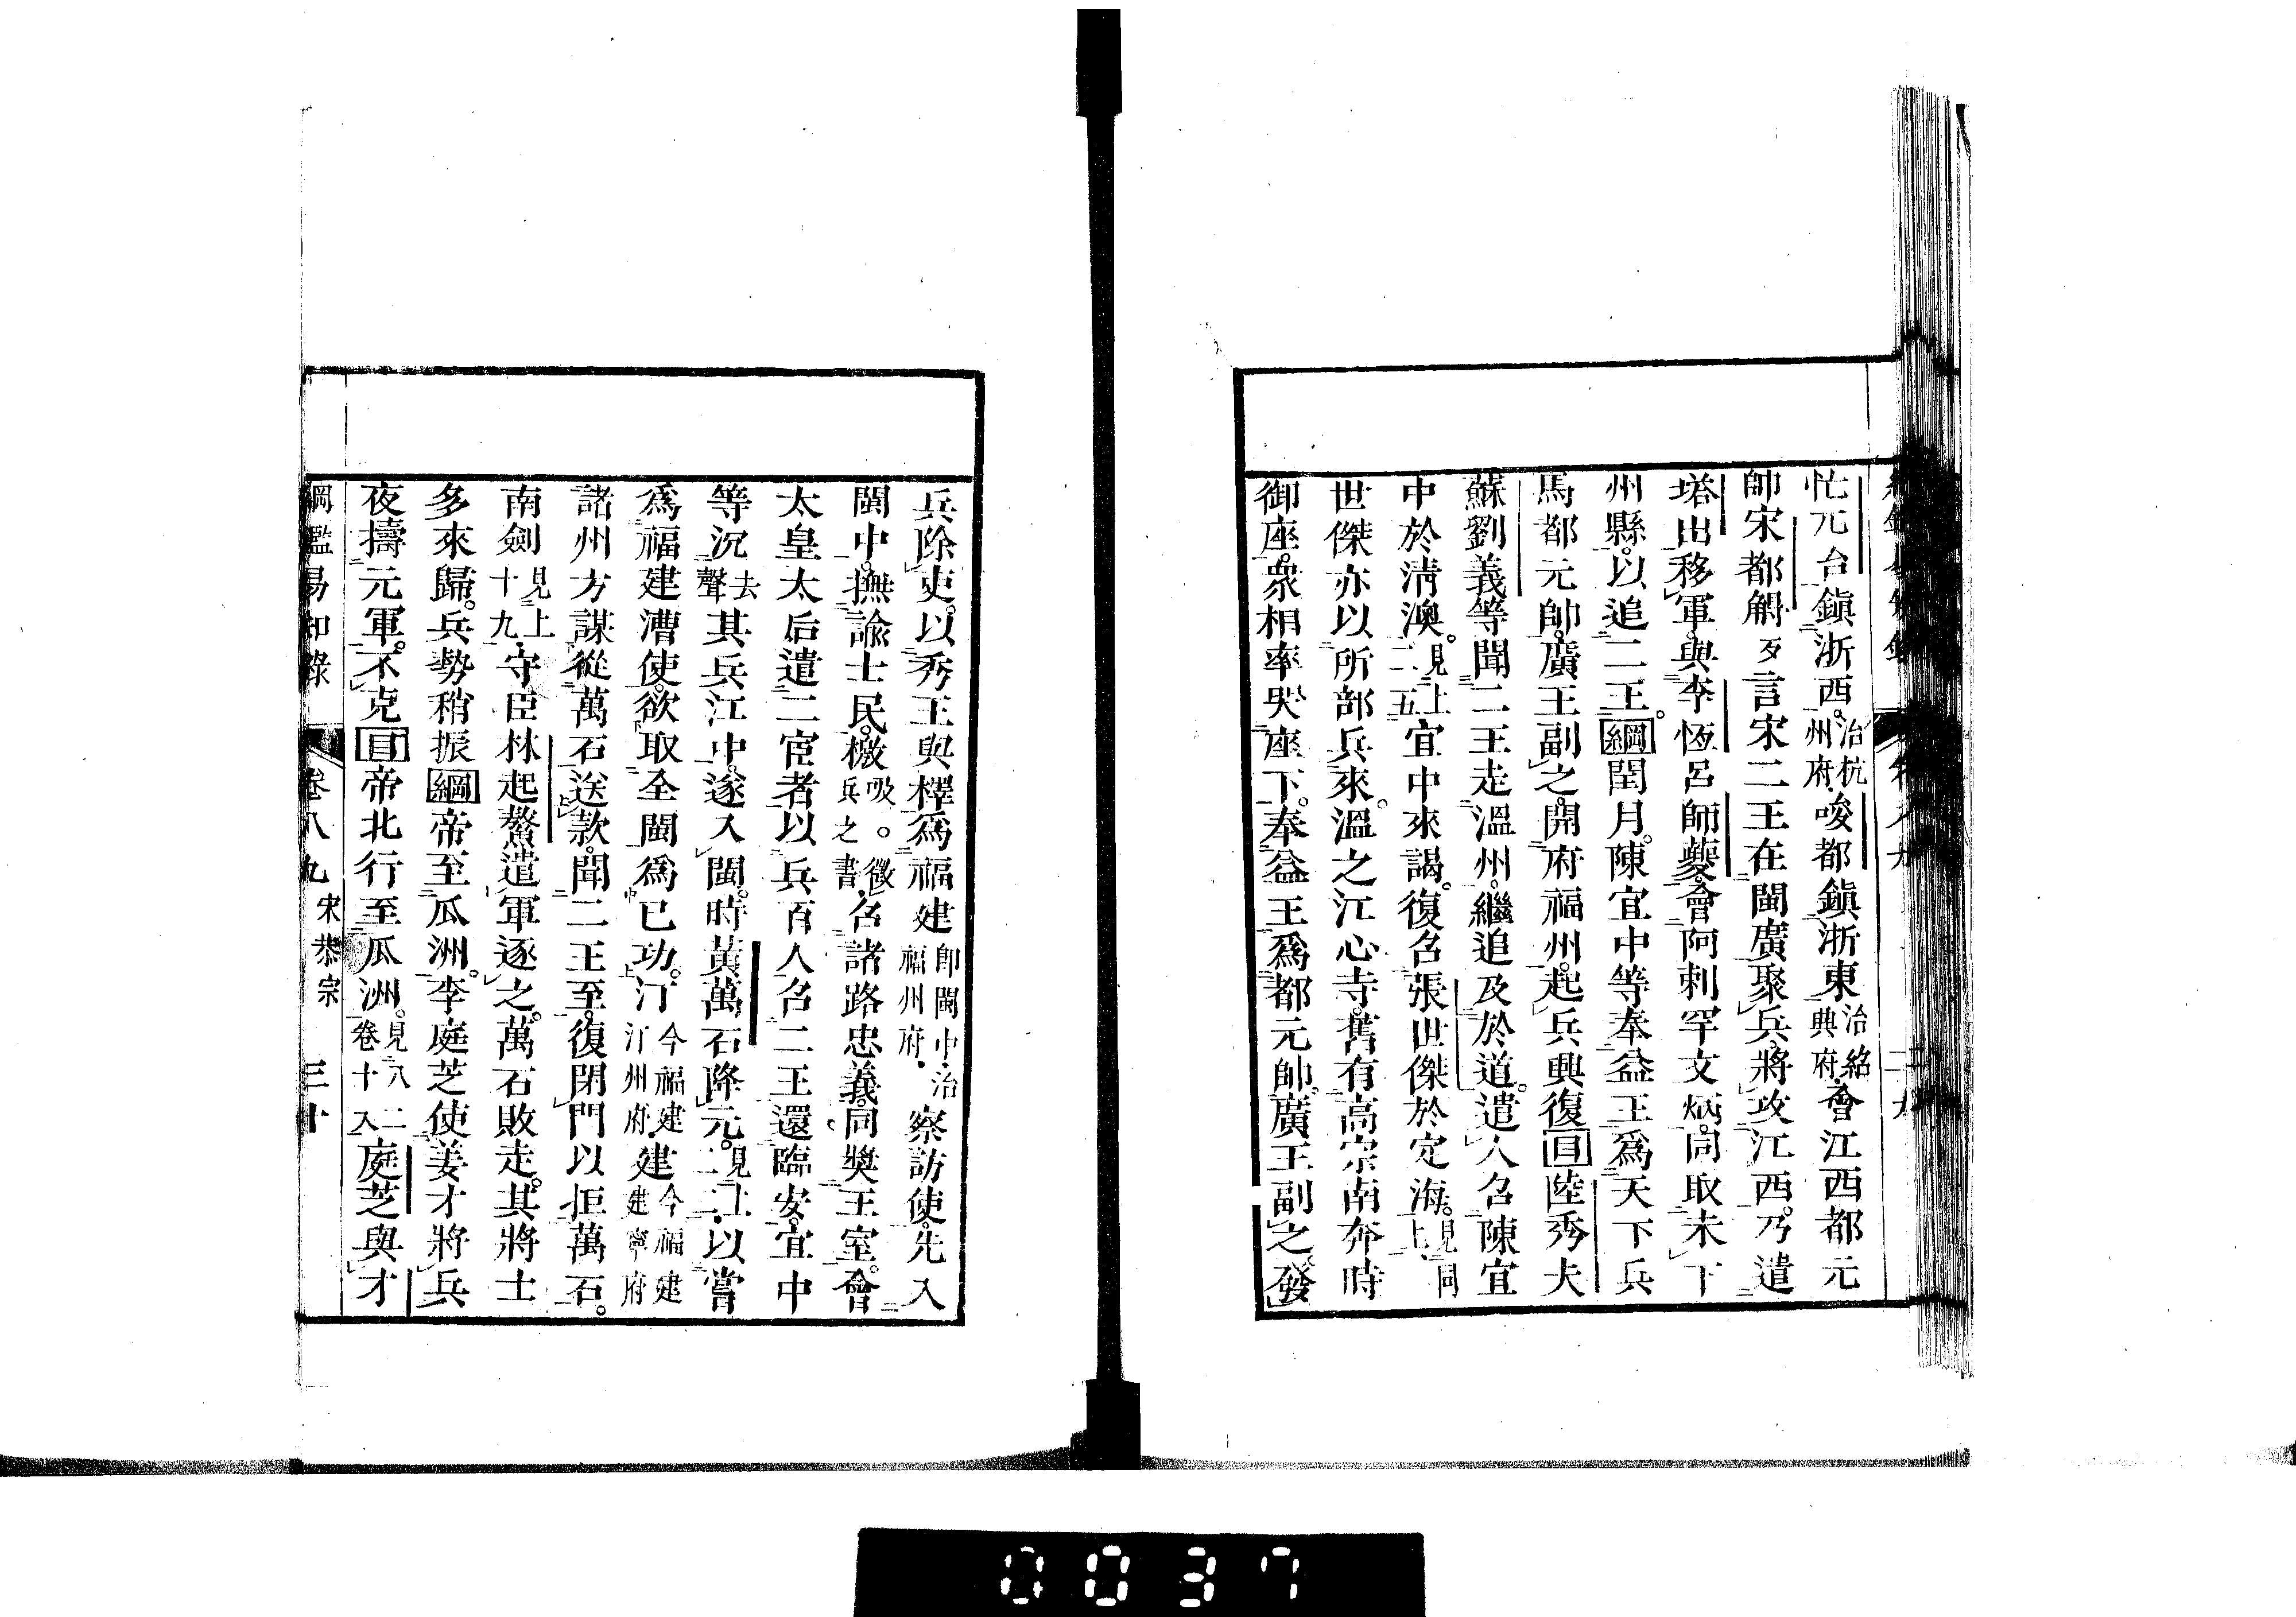 忙兀台鎮浙西。治杭州府。唆都鎮浙東治紹興府。會江西都元
帥宋都䚟歹言宋二王在閩廣聚兵將攻江西。乃遣
塔出移軍與李恆呂師夔會阿剌罕文炳同取未下
州縣。以追二王。綱閏月。陳宜中等奉益王爲天下兵
馬都元帥。廣王副之。開府福州。起兵興復目陸秀夫
蘇劉義等聞二王走溫州。繼追及於道。遣人召陳宜
中於淸澳。見上二五宜中來謁。復召張世傑於定海。見同上
世傑亦以所部兵來。溫之江心寺。舊有高宗南奔時
御座。衆相率哭座下。奉益王爲都元帥。廣王副之。發
兵除吏。以秀王與檡爲福建卽閩中。治福州府。察訪使。先入
閩中。撫諭士民。檄吸。徵兵之書。召諸路忠義。同奬王室。會
太皇太后遣二宦者以兵百人召二王還臨安。宜中
等沉去聲其兵江中。遂入閩。時黃萬石降元。見上二二。以嘗
爲福建漕使。欲取全閩爲己功。汀今福建汀州府。建今福建建寧府
諸州方謀從萬石送款。聞二王至。復閉門以拒萬石。
南劍見上十九。守臣林起鰲遣軍逐之。萬石敗走。其將士
多來歸。兵勢稍振綱帝至瓜洲。李庭芝使姜才將兵
夜擣元軍。不克目帝北行至瓜洲。見八二卷十入庭芝與才
綱鑑易知錄 卷八九 宋恭宗 三十
0037